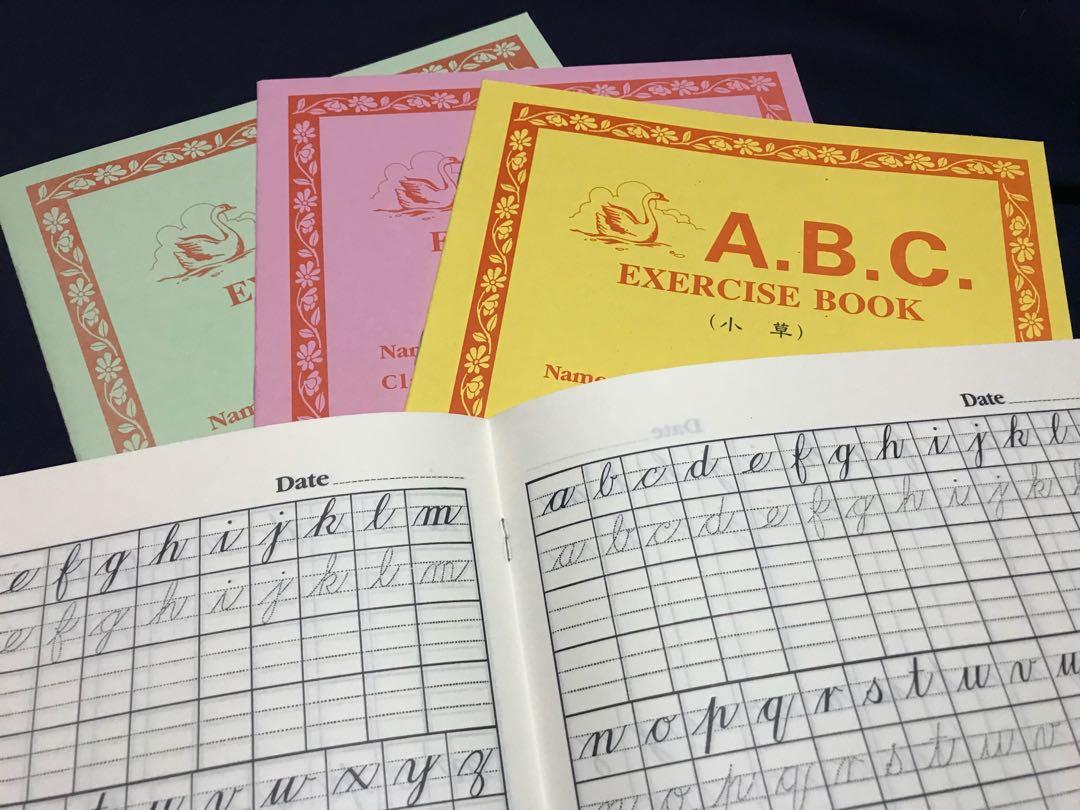 A.B.C.
EXERCISE BOOK
(小 草)
Name
Date
e f g h i j k l m
e f g h i j k l m
u v w x y z
Date
a b c d e f g h i j k l
a b c d e f g h i j k l
n o p q r s t u v
n o p q r s t u v